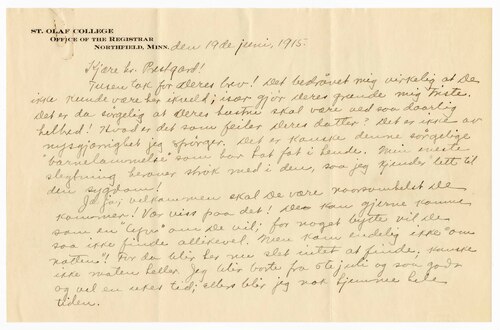 ST. OLAF COLLEGE
OFFICE OF THE REGISTRAR
NORTHFIELD, MINN.
den 19de juni, 1915.
Kjære hr. Prestgard!
Tusen tak for deres brev! Det bedrøvet mig virkelig at De
ikke kunde være her ikveld; især gjør deres grunde mig triste.
Det er da sørgelig at Deres hustru skal være ved saa daarlig
helbred! Hvad er det som feiler deres datter? Det er ikke av
nysgjærrighet jeg spørger. Det er kanske denne sørgelige
"barnelammelse" som har tat fat i hende. Min eneste
slegtning herover strøk med i den, saa jeg kjender lett til
den sygdom!
Ja ja, velkommen skal De være naarsomhelst De
kommer! Vær viss paa det! De kan gjerne komme
som en "tyv" om De vil; for noget bytte vil De
saa ikke finde allikevel. Men kom endelig ikke "om
natten"! For da blir her nu slet intet at finde, kanske
ikke maten heller. Jeg blir borte fra 6te juli og saa godt
og vel en ukes tid; ellers blir jeg nok hjemme hele
tiden.